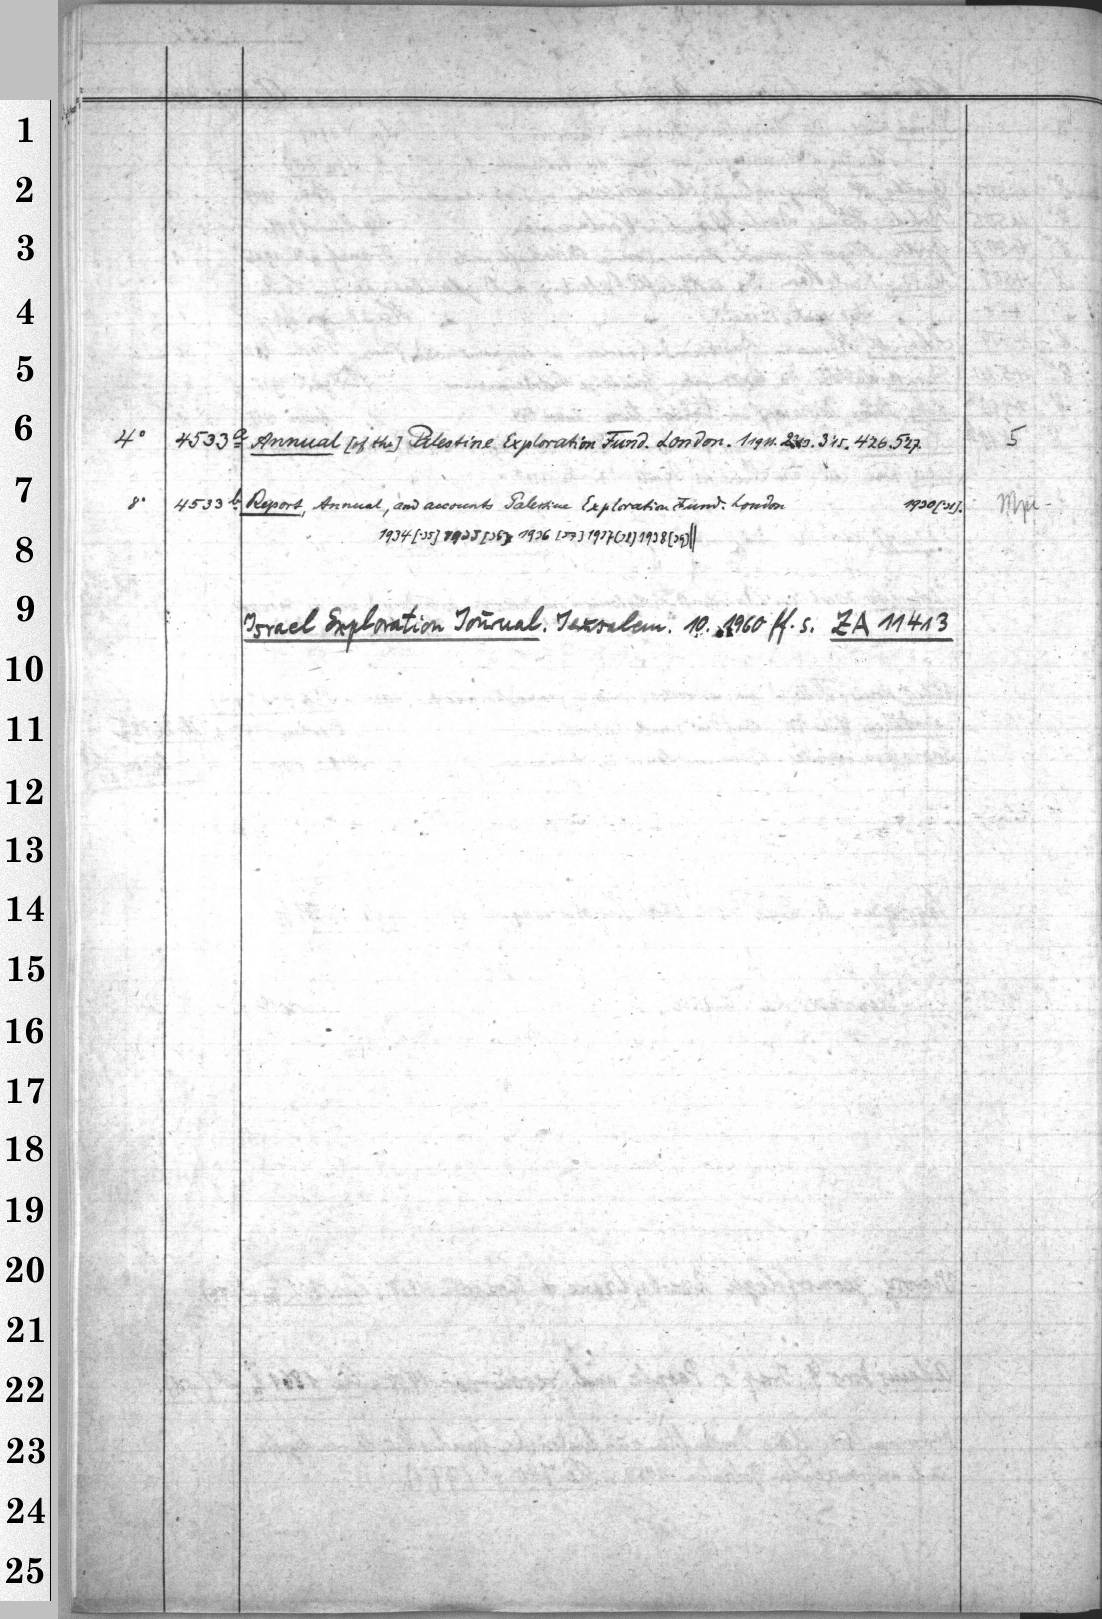 1
2
3
4
5
6
4° 4533a Annual [of the] Palestine Exploration Fund. London. 1 1911. 2 3 '15. 4 26. 5 '27. 5
7
8° 4533b Report, Annual, and accounts Palestine Exploration Fund. London 1930[-31].
8
1934[-35] 1935[-36] 1936[-37] 1937[-38] 1938[-39]||
9
Israel Exploration Journal. Jerusalem. 10. 1960 ff. s. ZA 11413
10
11
12
13
14
15
16
17
18
19
20
21
22
23
24
25